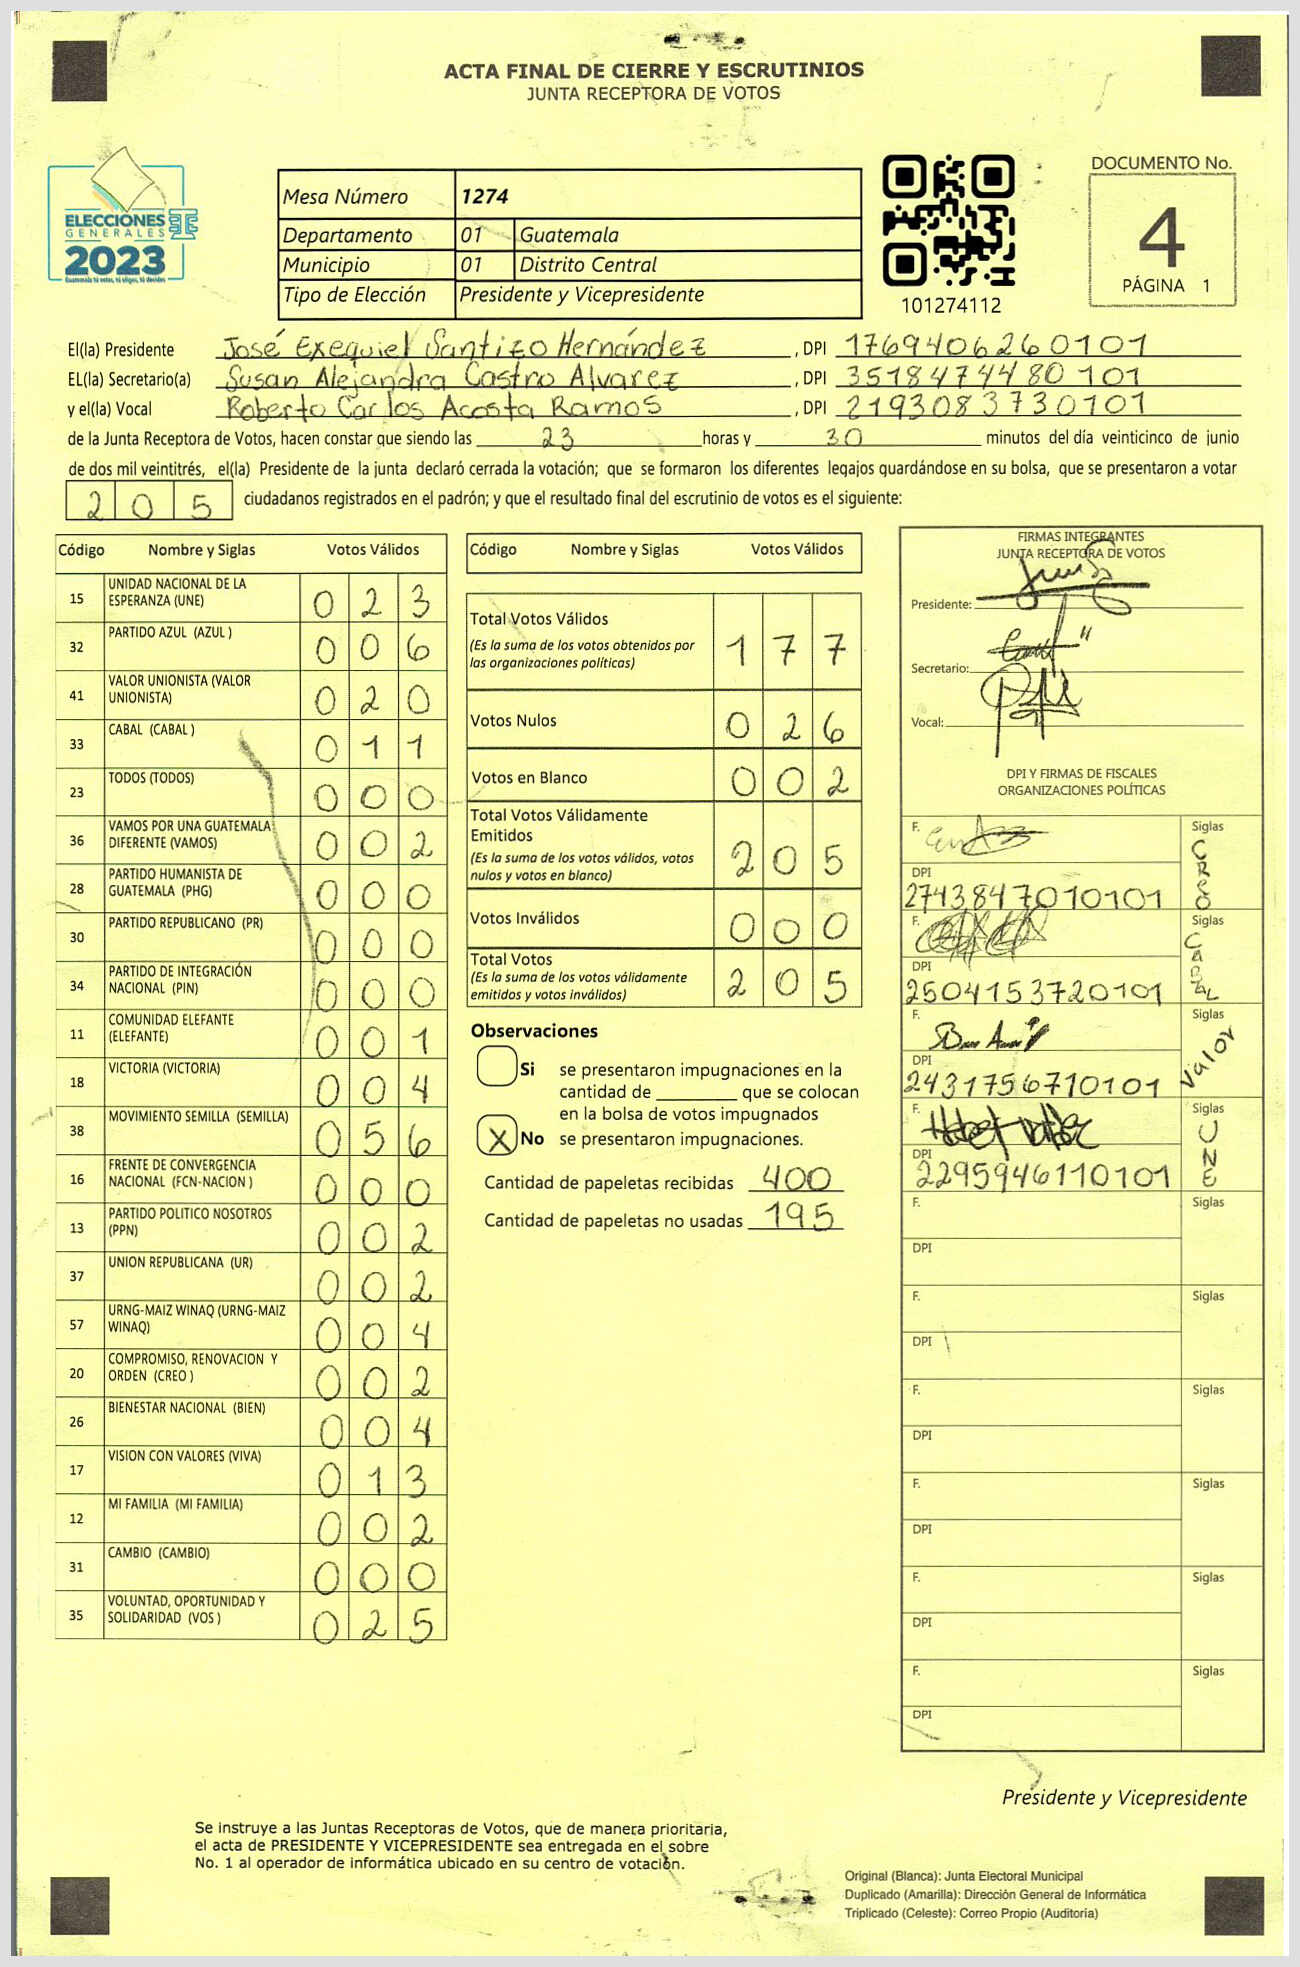 ACTA FINAL DE CIERRE Y ESCRUTINIOS
JUNTA RECEPTORA DE VOTOS
ELECCIONES
GENERALES
2023
Guatemala tú votas, tú eliges, tú decides
Mesa Número 1274
Departamento 01 Guatemala
Municipio 01 Distrito Central
Tipo de Elección Presidente y Vicepresidente
101274112
DOCUMENTO No.
4
PÁGINA 1
El(la) Presidente José Exequiel Santizo Hernández , DPI 1769406260101
EL(la) Secretario(a) Susan Alejandra Castro Alvarez , DPI 3518474480101
y el(la) Vocal Roberto Carlos Acosta Ramos , DPI 2193083730101
de la Junta Receptora de Votos, hacen constar que siendo las 23 horas y 30 minutos del día veinticinco de junio
de dos mil veintitrés, el(la) Presidente de la junta declaró cerrada la votación; que se formaron los diferentes legajos guardándose en su bolsa, que se presentaron a votar
205 ciudadanos registrados en el padrón; y que el resultado final del escrutinio de votos es el siguiente:
Código Nombre y Siglas Votos Válidos
15 UNIDAD NACIONAL DE LA ESPERANZA (UNE) 023
32 PARTIDO AZUL (AZUL ) 006
41 VALOR UNIONISTA (VALOR UNIONISTA) 020
33 CABAL (CABAL ) 011
23 TODOS (TODOS) 000
36 VAMOS POR UNA GUATEMALA DIFERENTE (VAMOS) 002
28 PARTIDO HUMANISTA DE GUATEMALA (PHG) 000
30 PARTIDO REPUBLICANO (PR) 000
34 PARTIDO DE INTEGRACIÓN NACIONAL (PIN) 000
11 COMUNIDAD ELEFANTE (ELEFANTE) 001
18 VICTORIA (VICTORIA) 004
38 MOVIMIENTO SEMILLA (SEMILLA) 056
16 FRENTE DE CONVERGENCIA NACIONAL (FCN-NACION ) 000
13 PARTIDO POLITICO NOSOTROS (PPN) 002
37 UNION REPUBLICANA (UR) 002
57 URNG-MAIZ WINAQ (URNG-MAIZ WINAQ) 004
20 COMPROMISO, RENOVACION Y ORDEN (CREO ) 002
26 BIENESTAR NACIONAL (BIEN) 004
17 VISION CON VALORES (VIVA) 013
12 MI FAMILIA (MI FAMILIA) 002
31 CAMBIO (CAMBIO) 000
35 VOLUNTAD, OPORTUNIDAD Y SOLIDARIDAD (VOS ) 025
Código Nombre y Siglas Votos Válidos
Total Votos Válidos
(Es la suma de los votos obtenidos por
las organizaciones políticas) 177
Votos Nulos 026
Votos en Blanco 002
Total Votos Válidamente
Emitidos
(Es la suma de los votos válidos, votos
nulos y votos en blanco) 205
Votos Inválidos 000
Total Votos
(Es la suma de los votos válidamente
emitidos y votos inválidos) 205
Observaciones
Si se presentaron impugnaciones en la
cantidad de ________ que se colocan
en la bolsa de votos impugnados
X No se presentaron impugnaciones.
Cantidad de papeletas recibidas 400
Cantidad de papeletas no usadas 195
FIRMAS INTEGRANTES
JUNTA RECEPTORA DE VOTOS
Presidente:
Secretario:
Vocal:
DPI Y FIRMAS DE FISCALES
ORGANIZACIONES POLÍTICAS
F. Siglas CREO
DPI 2743847010101
F. Siglas CABAL
DPI 2504153720101
F. Siglas Valor
DPI 2431756710101
F. Siglas UNE
DPI 2295946110101
F. Siglas
DPI
F. Siglas
DPI
F. Siglas
DPI
F. Siglas
DPI
F. Siglas
DPI
F. Siglas
DPI
Presidente y Vicepresidente
Se instruye a las Juntas Receptoras de Votos, que de manera prioritaria,
el acta de PRESIDENTE Y VICEPRESIDENTE sea entregada en el sobre
No. 1 al operador de informática ubicado en su centro de votación.
Original (Blanca): Junta Electoral Municipal
Duplicado (Amarilla): Dirección General de Informática
Triplicado (Celeste): Correo Propio (Auditoría)